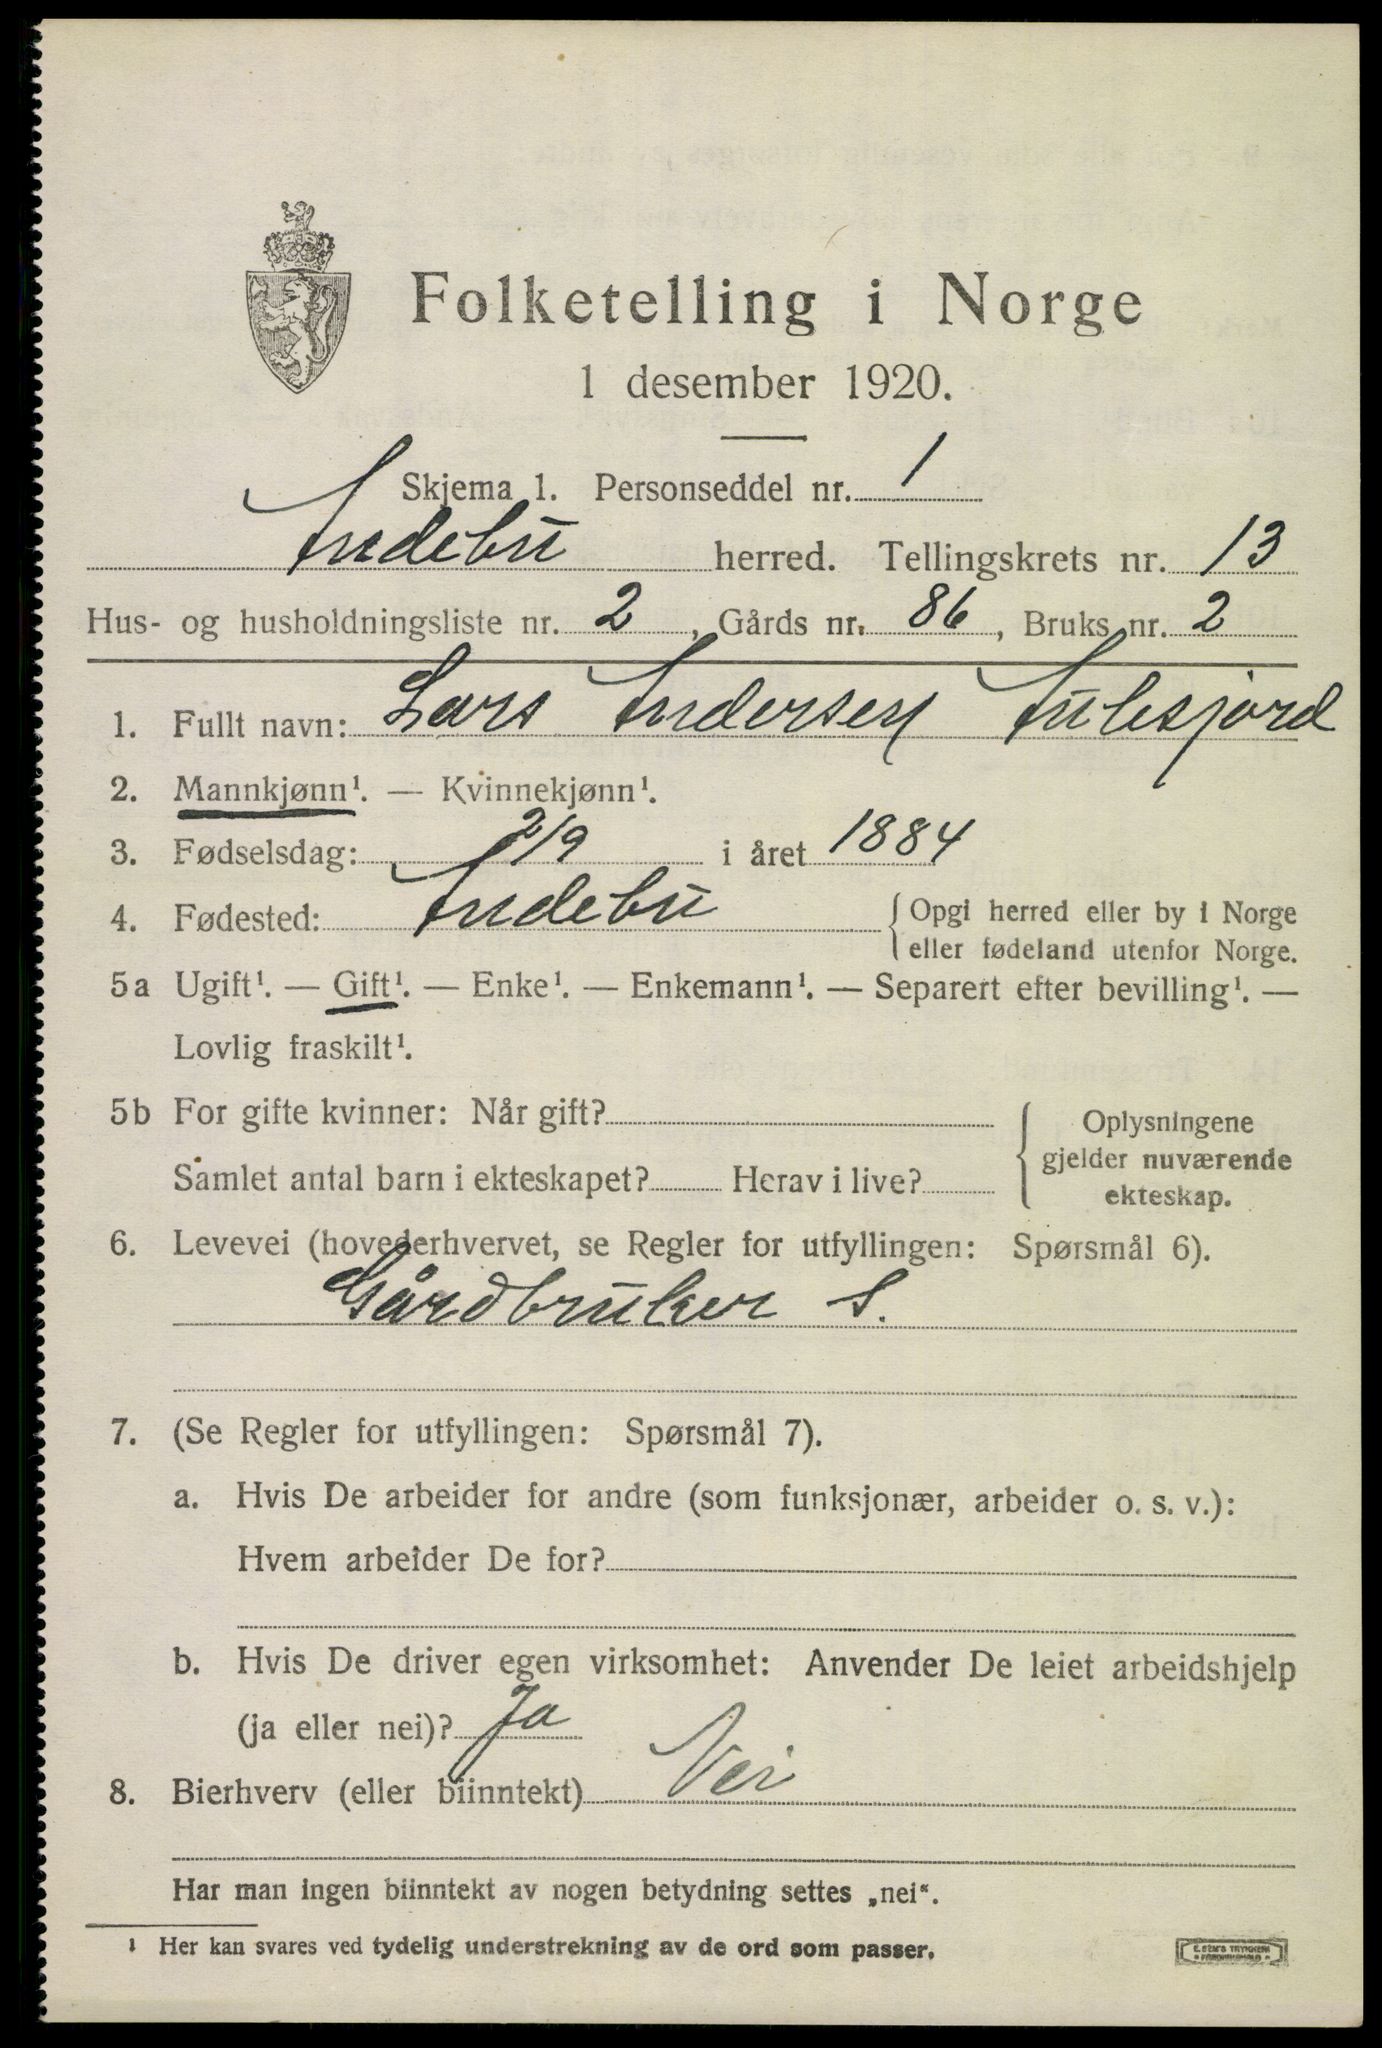 Folketelling i Norge
1 desember 1920.
Skjema 1. Personseddel nr. 1
Andebu herred. Tellingskrets nr. 13
Hus- og husholdningsliste nr. 2, Gårds nr. 86, Bruks nr. 2
1. Fullt navn: Lars Andersen Aulesjord
2. Mannkjønn¹. — Kvinnekjønn¹.
3. Fødselsdag: 2/9 i året 1884
4. Fødested: Andebu {Opgi herred eller by i Norge
eller fødeland utenfor Norge.
5a Ugift¹. — Gift¹. — Enke¹. — Enkemann¹. — Separert efter bevilling¹. —
Lovlig fraskilt¹.
5b For gifte kvinner: Når gift? { Oplysningene
gjelder nuværende
Samlet antal barn i ekteskapet? Herav i live? ekteskap.
6. Levevei (hovederhvervet, se Regler for utfyllingen: Spørsmål 6).
Gårdbruker S.
7. (Se Regler for utfyllingen: Spørsmål 7).
a. Hvis De arbeider for andre (som funksjonær, arbeider o. s. v.):
Hvem arbeider De for?
b. Hvis De driver egen virksomhet: Anvender De leiet arbeidshjelp
(ja eller nei)? Ja
8. Bierhverv (eller biinntekt) Nei
Har man ingen biinntekt av nogen betydning settes „nei“.
¹ Her kan svares ved tydelig understrekning av de ord som passer.